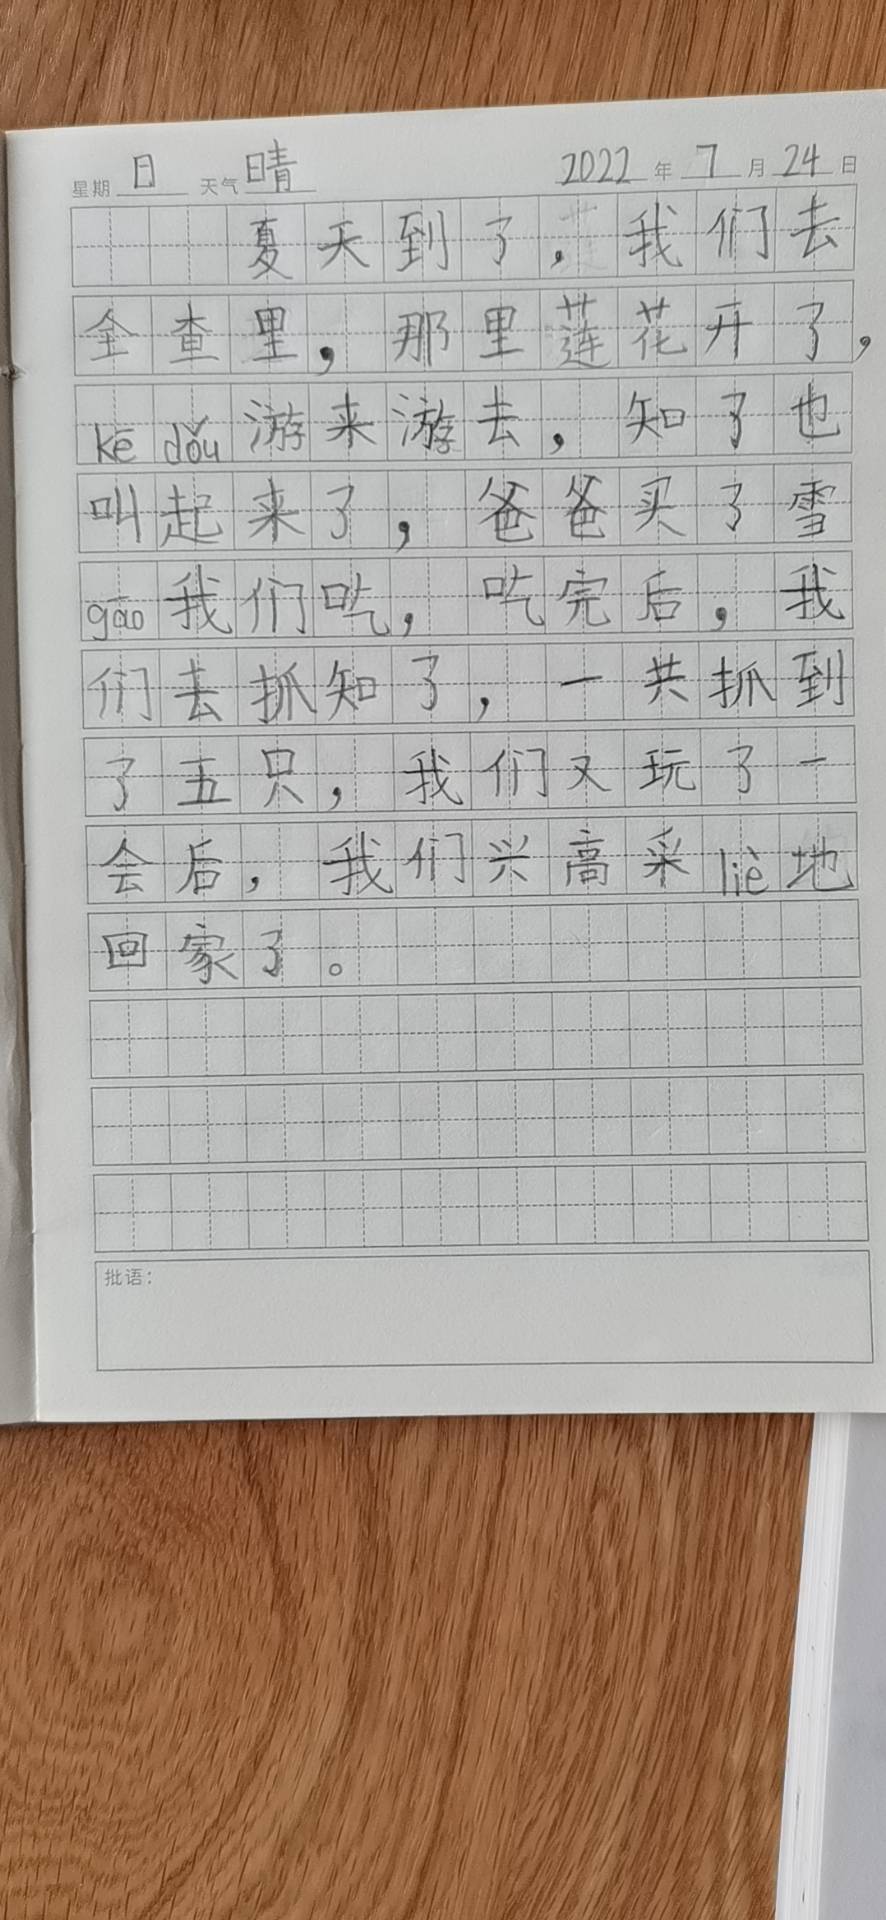 星期 日 天气 晴 2022 年 7 月 24 日
夏天到了，我们去
全查里，那里莲花开了，
kē dǒu游来游去，知了也
叫起来了，爸爸买了雪
gāo我们吃，吃完后，我
们去抓知了，一共抓到
了五只，我们又玩了一
会后，我们兴高采liè地
回家了。
批语：